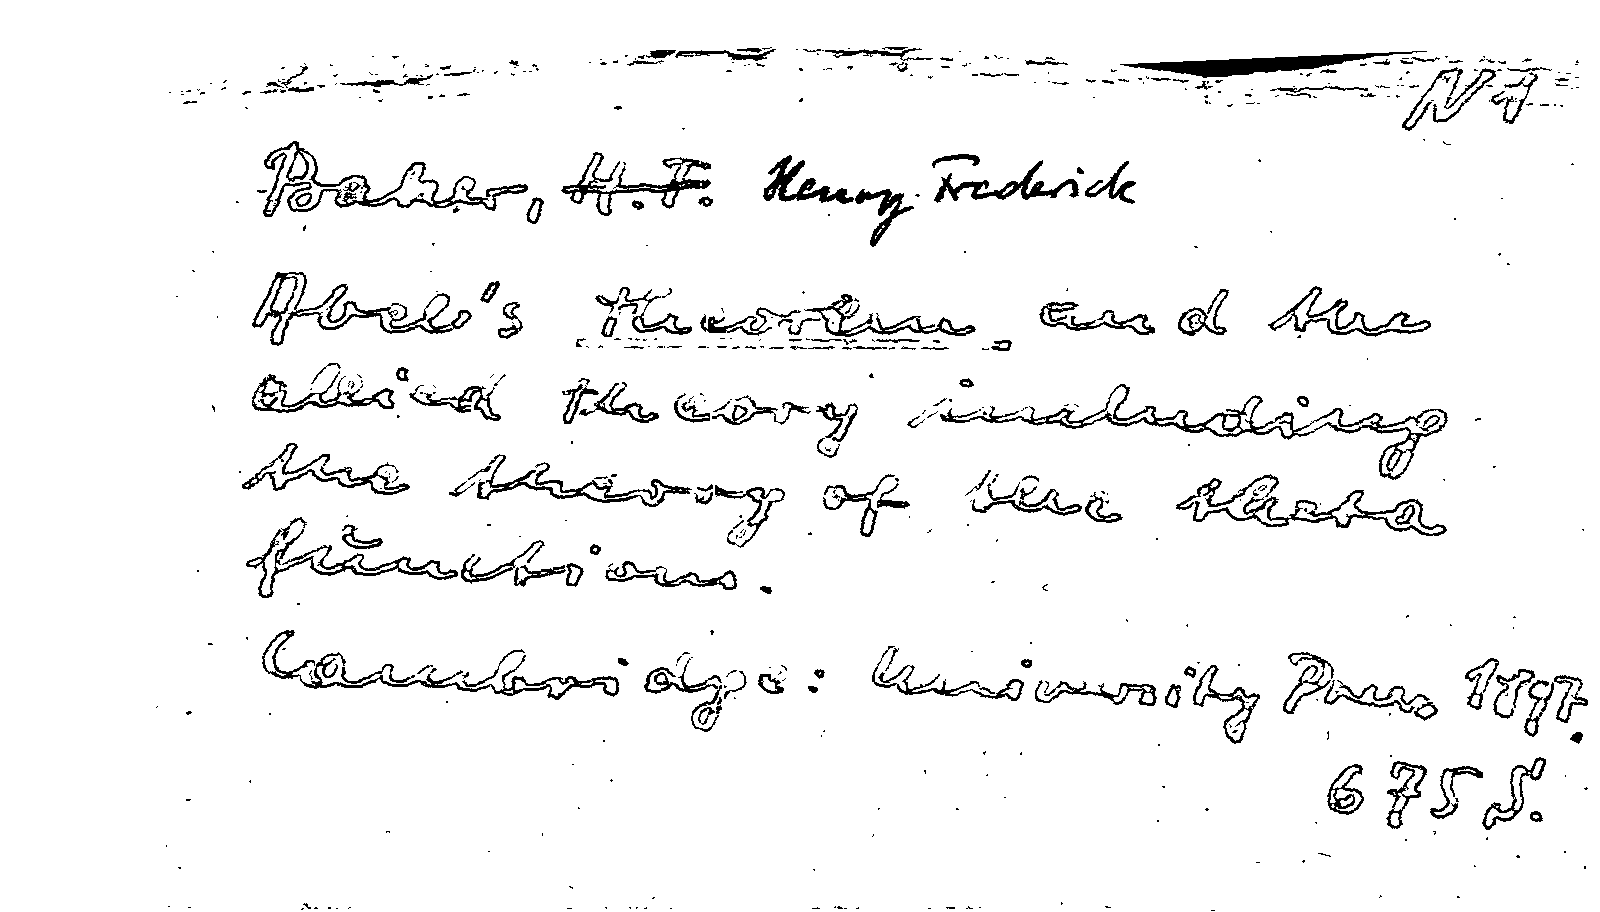 N 1
Baker, H.F. Henry Frederick
Abel's theorem and the
allied theory including
the theory of the theta
functions.
Cambridge: University Press, 1897.
675 S.